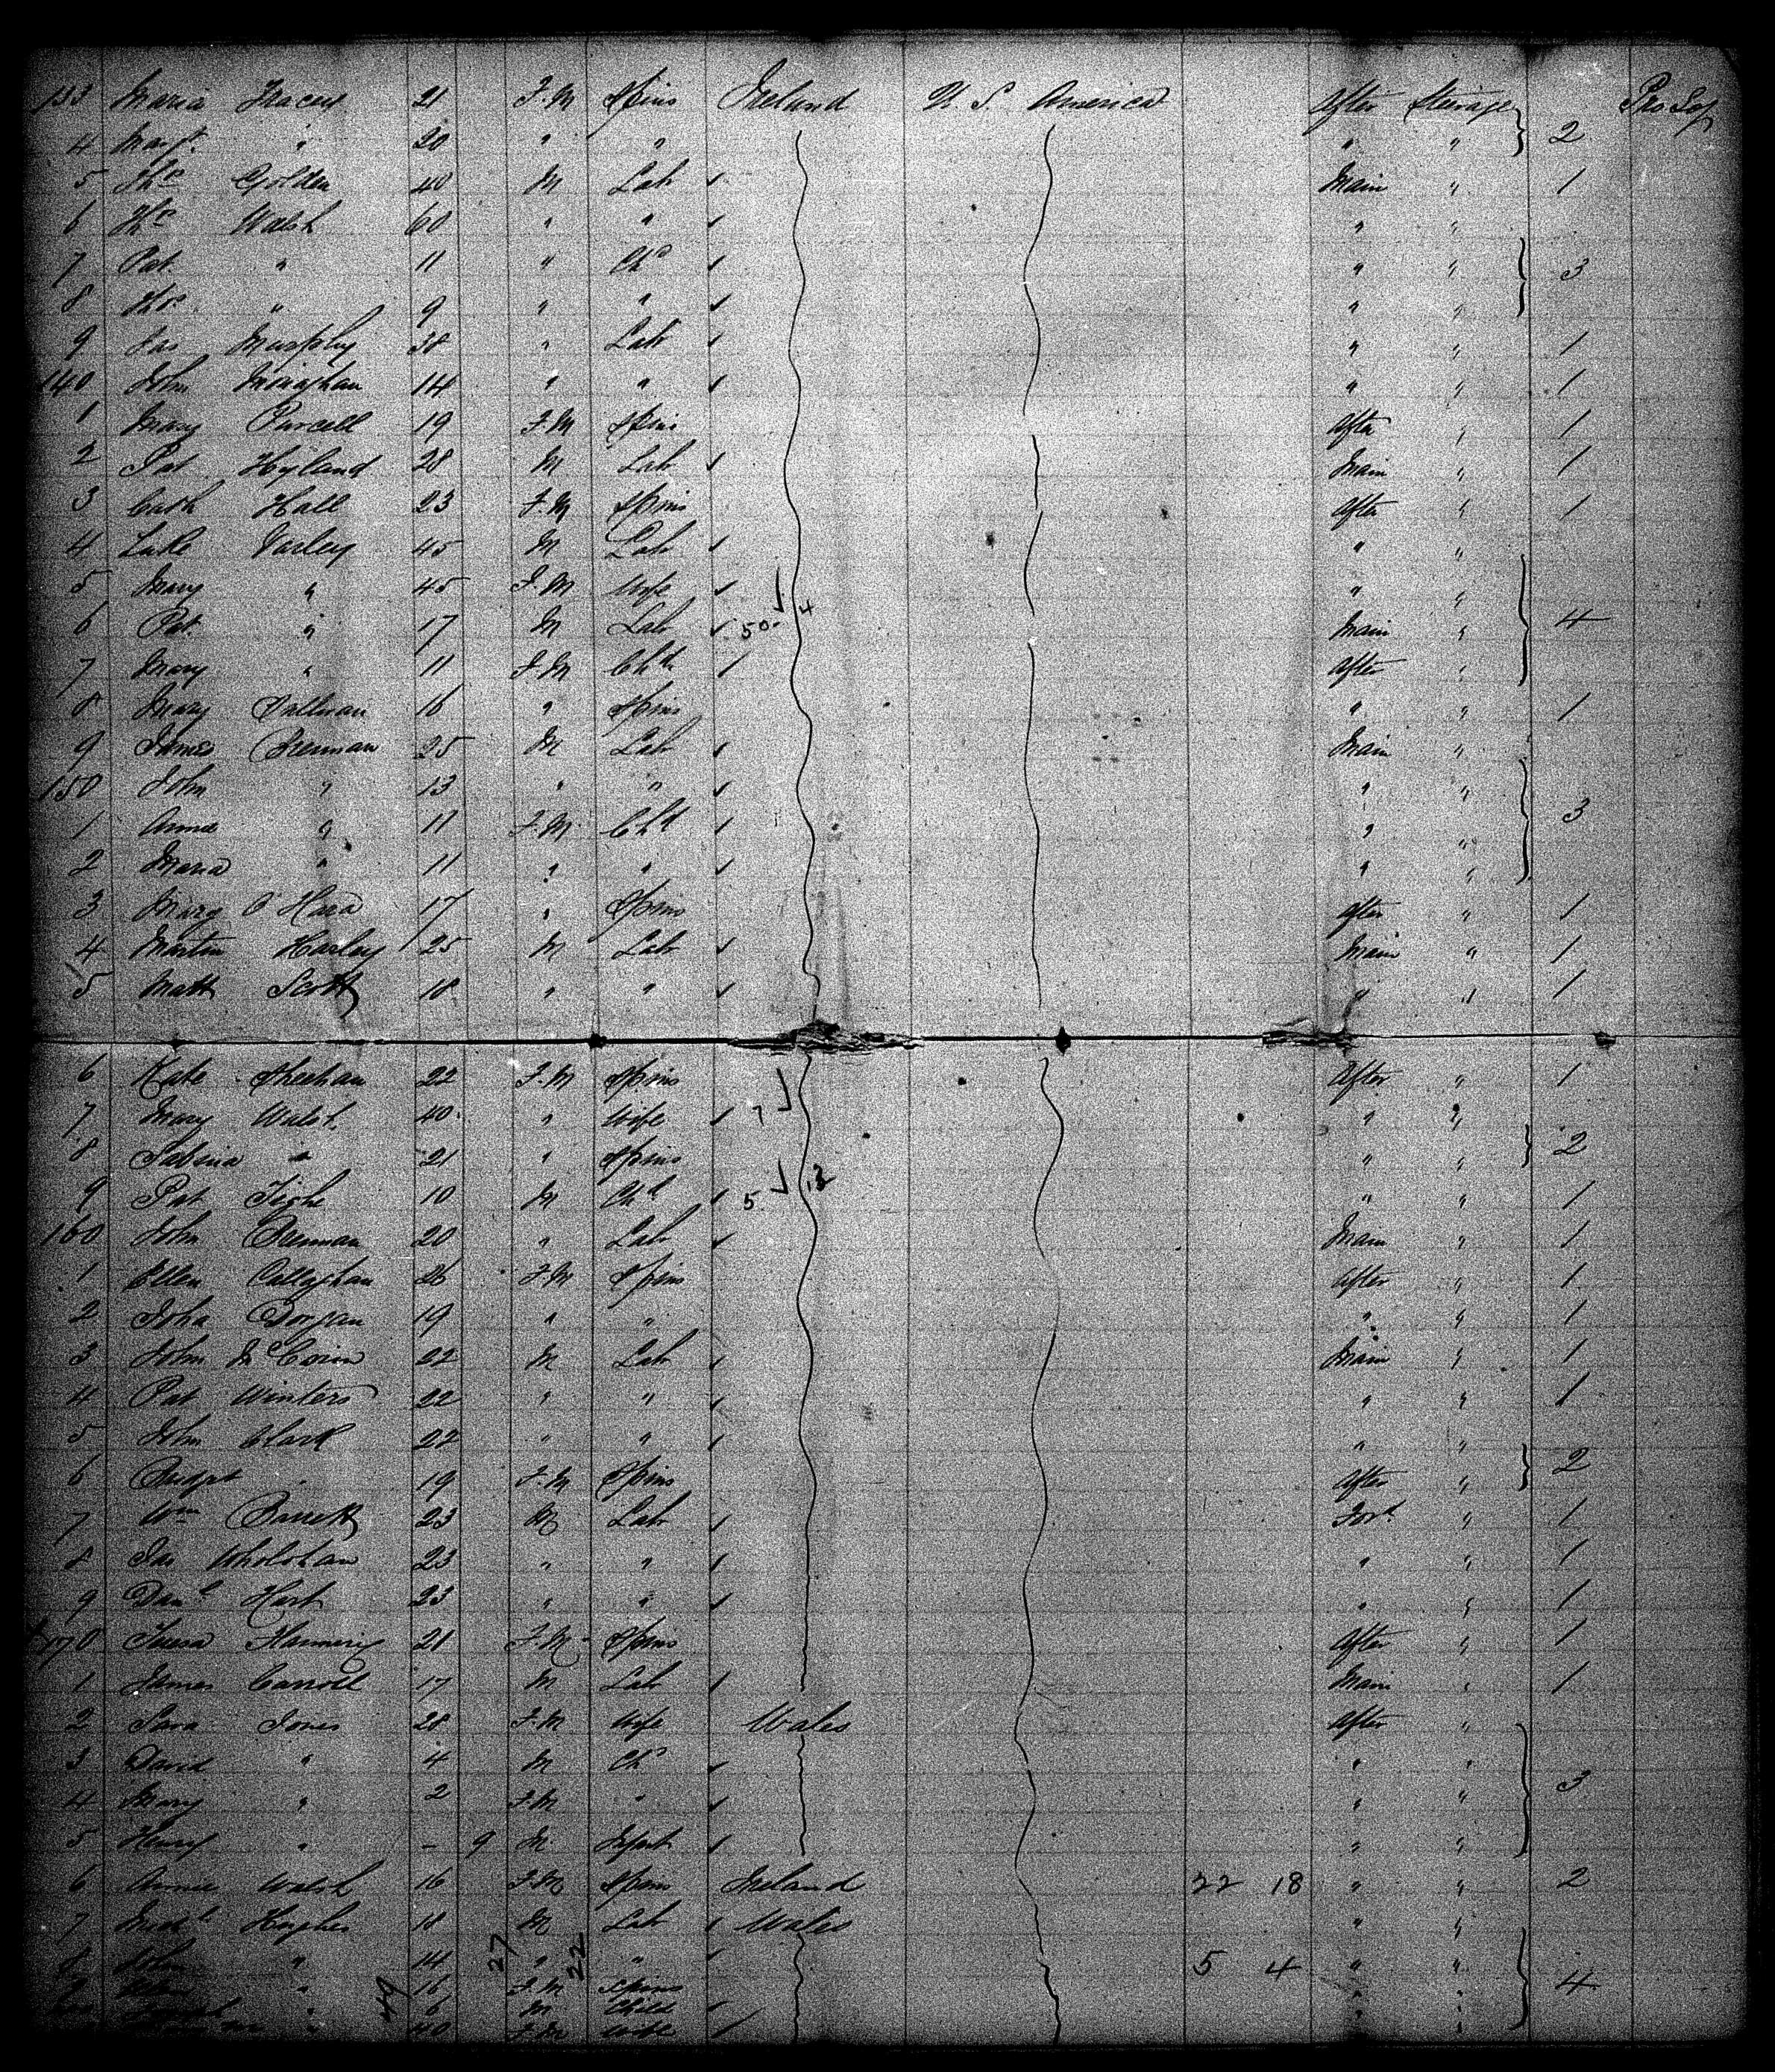 133 Maria Tracey 21 F.M Spins Ireland U S America After Steerage Pro Sep
4 Margt " 20 " " " " 2
5 Ths Golden 40 M Lab Main " 1
6 Ths Walsh 60 " " " "
7 Pat " 11 " Chd " " 3
8 Ths " 9 " " " "
9 Jas Murphy 38 " Lab " " 1
140 John Monaghan 14 " " " " 1
1 Mary Purcell 19 F.M Spins After " 1
2 Pat Hyland 28 M Lab Main " 1
3 Cath Hall 23 F.M Spins After " 1
4 Luke Varley 45 M Lab " "
5 Mary " 45 F.M Wife " "
6 Pat " 17 M Lab 50- 4 Main " 4
7 Mary " 11 F.M Chd After "
8 Mary 16 " Spins " " 1
9 James Brennan 25 M Lab Main "
150 John " 13 " " " "
1 Anne " 11 F.M Chd " " 3
2 Maria " 11 " " " "
3 Mary O'Hara 17 " Spins After " 1
4 Martin Harley 25 M Lab Main " 1
5 Matt Scott 18 " " " " 1
6 Kate Sheehan 22 F.M Spins After " 1
7 Mary Walsh 40 " Wife 7 " "
8 Sabina " 21 " Spins " " 2
9 Pat Tighe 10 M Chd 5 13 " " 1
160 John Brennan 20 " Lab Main " 1
1 Ellen Callaghan 26 F.M Spins After " 1
2 Dorgan 19 " " " " 1
3 John 22 M Lab Main " 1
4 Pat Winters 22 " " " " 1
5 John Clark 22 " " " "
6 Bridget " 19 F.M Spins After " 2
7 Wm Barrett 23 M Lab Ford " 1
8 Jas 23 " " " " 1
9 Danl Hart 23 " " " " 1
170 Teresa Flannery 21 F.M Spins After " 1
1 James Carroll 17 M Lab Main " 1
2 Sara Jones 28 F.M Wife Wales After "
3 David " 4 M Chd " "
4 Mary " 2 F.M " " " 3
5 Henry " - 9 M Infant " "
6 Annie Walsh 16 F.M Spins Ireland 22 18 " " 2
7 Michl Hughes 18 M Lab Wales " "
8 John " 14 27 " 22 " 5 4 " " 4
9 " 16 F.M Spins " "
" 6 M Child " "
" 40 F.M Wife " "
49